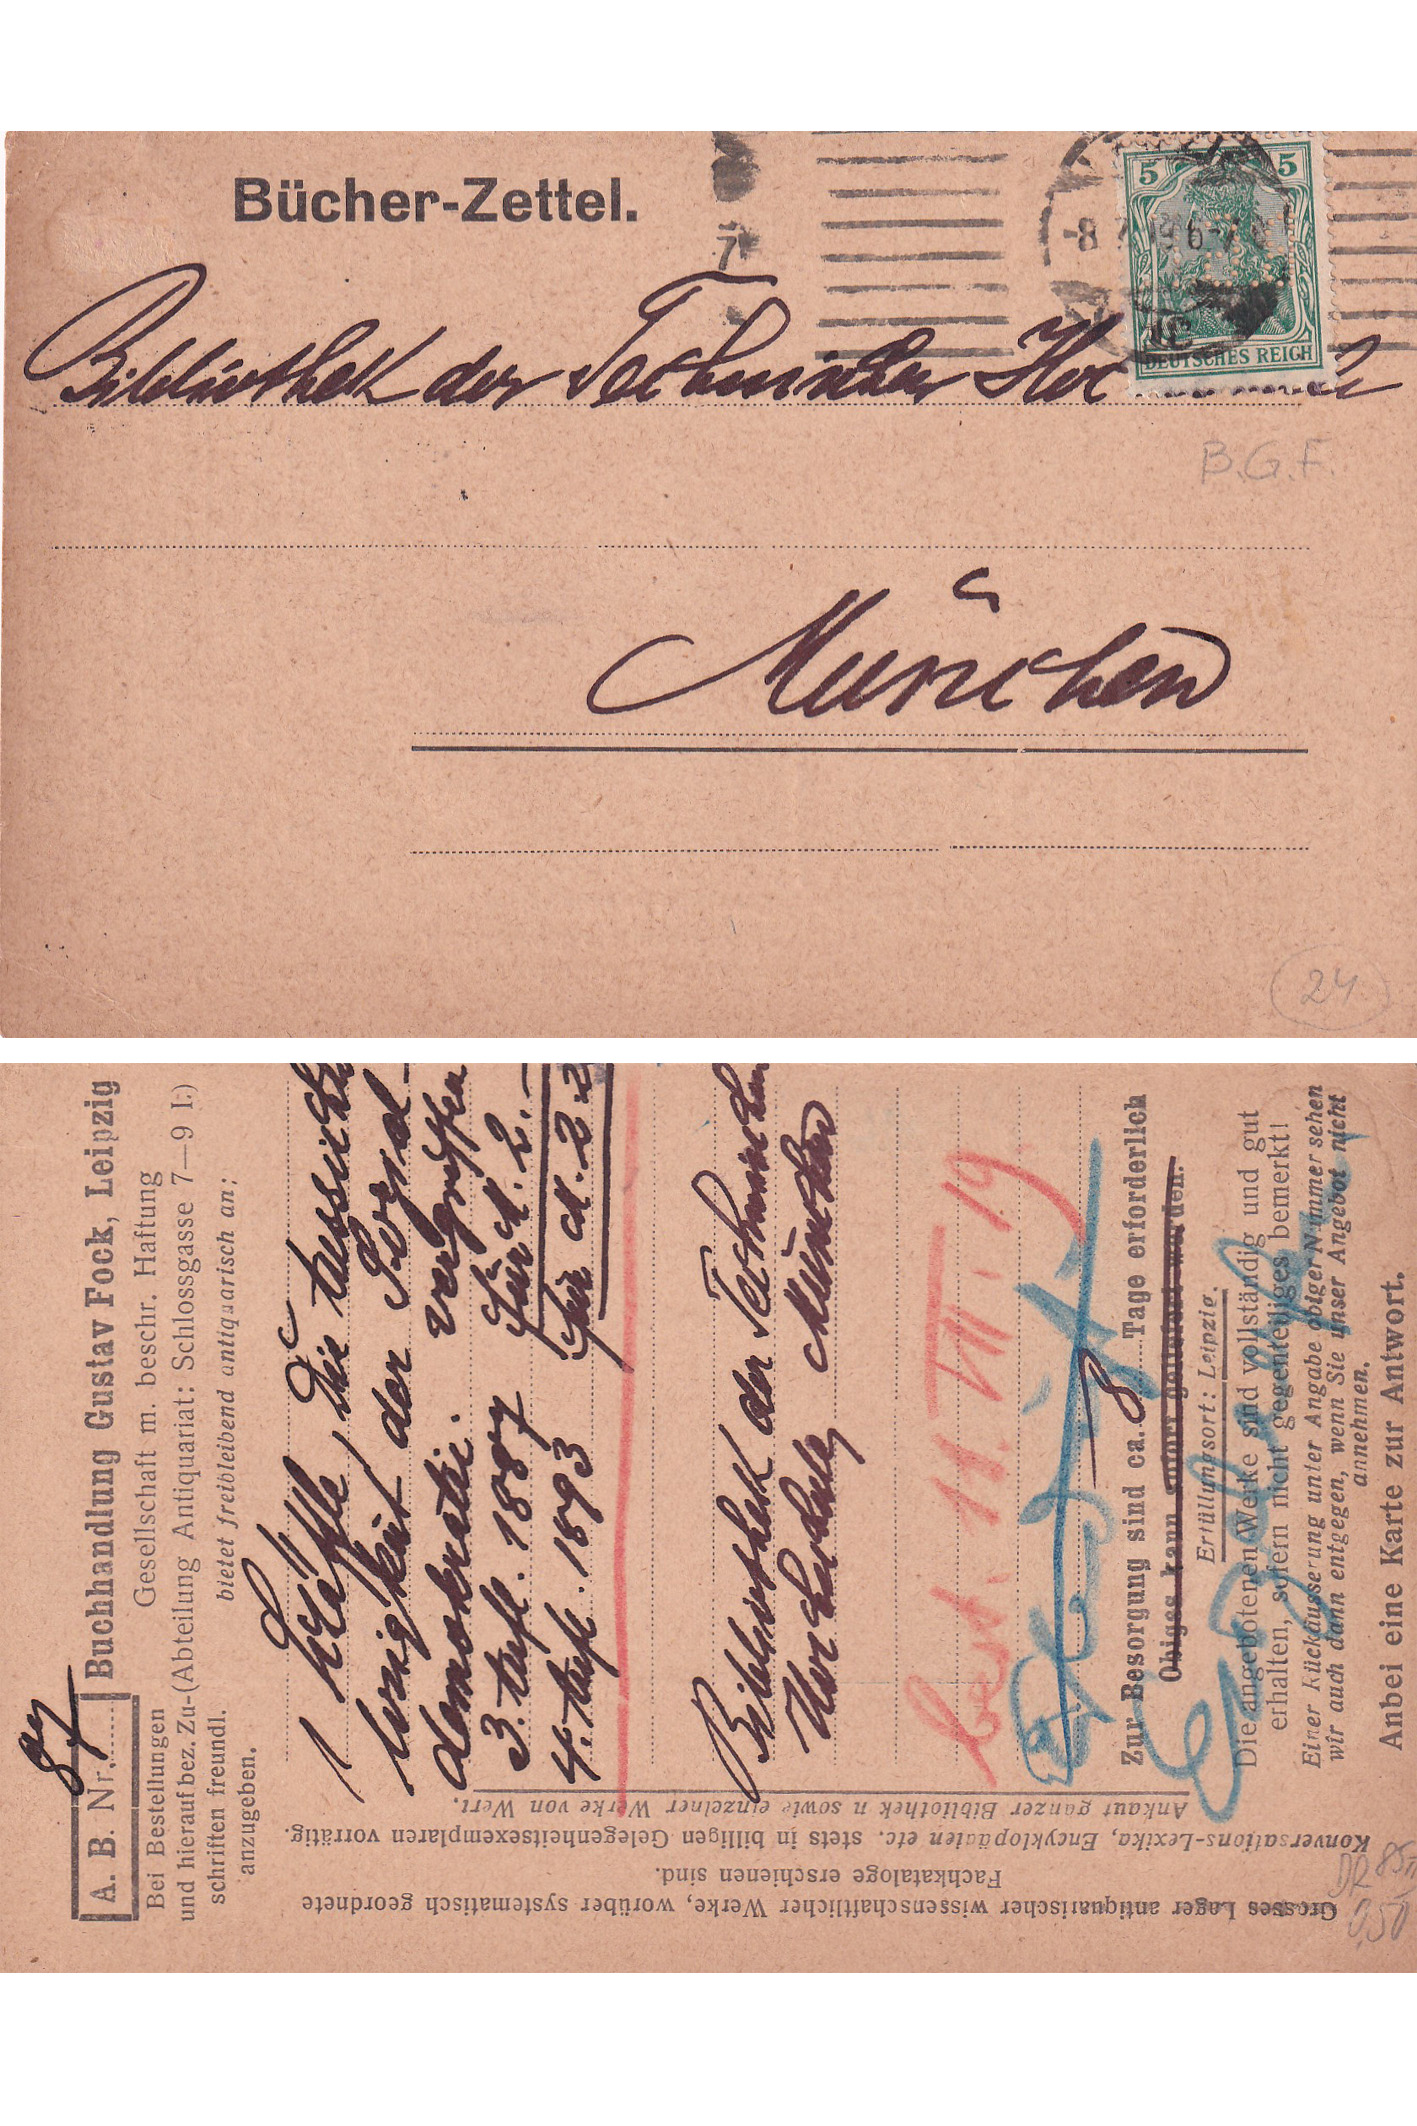 Bücher-Zettel.
5 5
DEUTSCHES REICH
Bibliothek der Technischen Hoc
B.G.F.
München
24
A. B. Nr. 87
Buchhandlung Gustav Fock, Leipzig
Gesellschaft m. beschr. Haftung
(Abteilung Antiquariat: Schlossgasse 7—9 I.)
bietet freibleibend antiquarisch an:
Bei Bestellungen
und hierauf bez. Zu-
schriften freundl.
anzugeben.
1 Schäffle, Die Aussichts
losigkeit der Sozial-
demokratie. vergriffen
3. Aufl. 1887 für M. 2.-
4. Aufl. 1893 für M. 2.
Bibliothek der Technischen
Hochschule, München
best. 11. VII. 19.
Zur Besorgung sind ca. 8 Tage erforderlich
Obiges kann sofort geliefert werden.
Erfüllungsort: Leipzig.
Die angebotenen Werke sind vollständig und gut
erhalten, sofern nicht gegenteiliges bemerkt!
Einer Rückäusserung unter Angabe obiger Nummer sehen
wir auch dann entgegen, wenn Sie unser Angebot nicht
annehmen.
Anbei eine Karte zur Antwort.
Grosses Lager antiquarischer wissenschaftlicher Werke, worüber systematisch geordnete
Fachkataloge erschienen sind.
Konversations-Lexika, Encyklopädien etc. stets in billigen Gelegenheitsexemplaren vorrätig.
Ankauf ganzer Bibliothek n sowie einzelner Werke von Wert.
DR 85 II
0,50